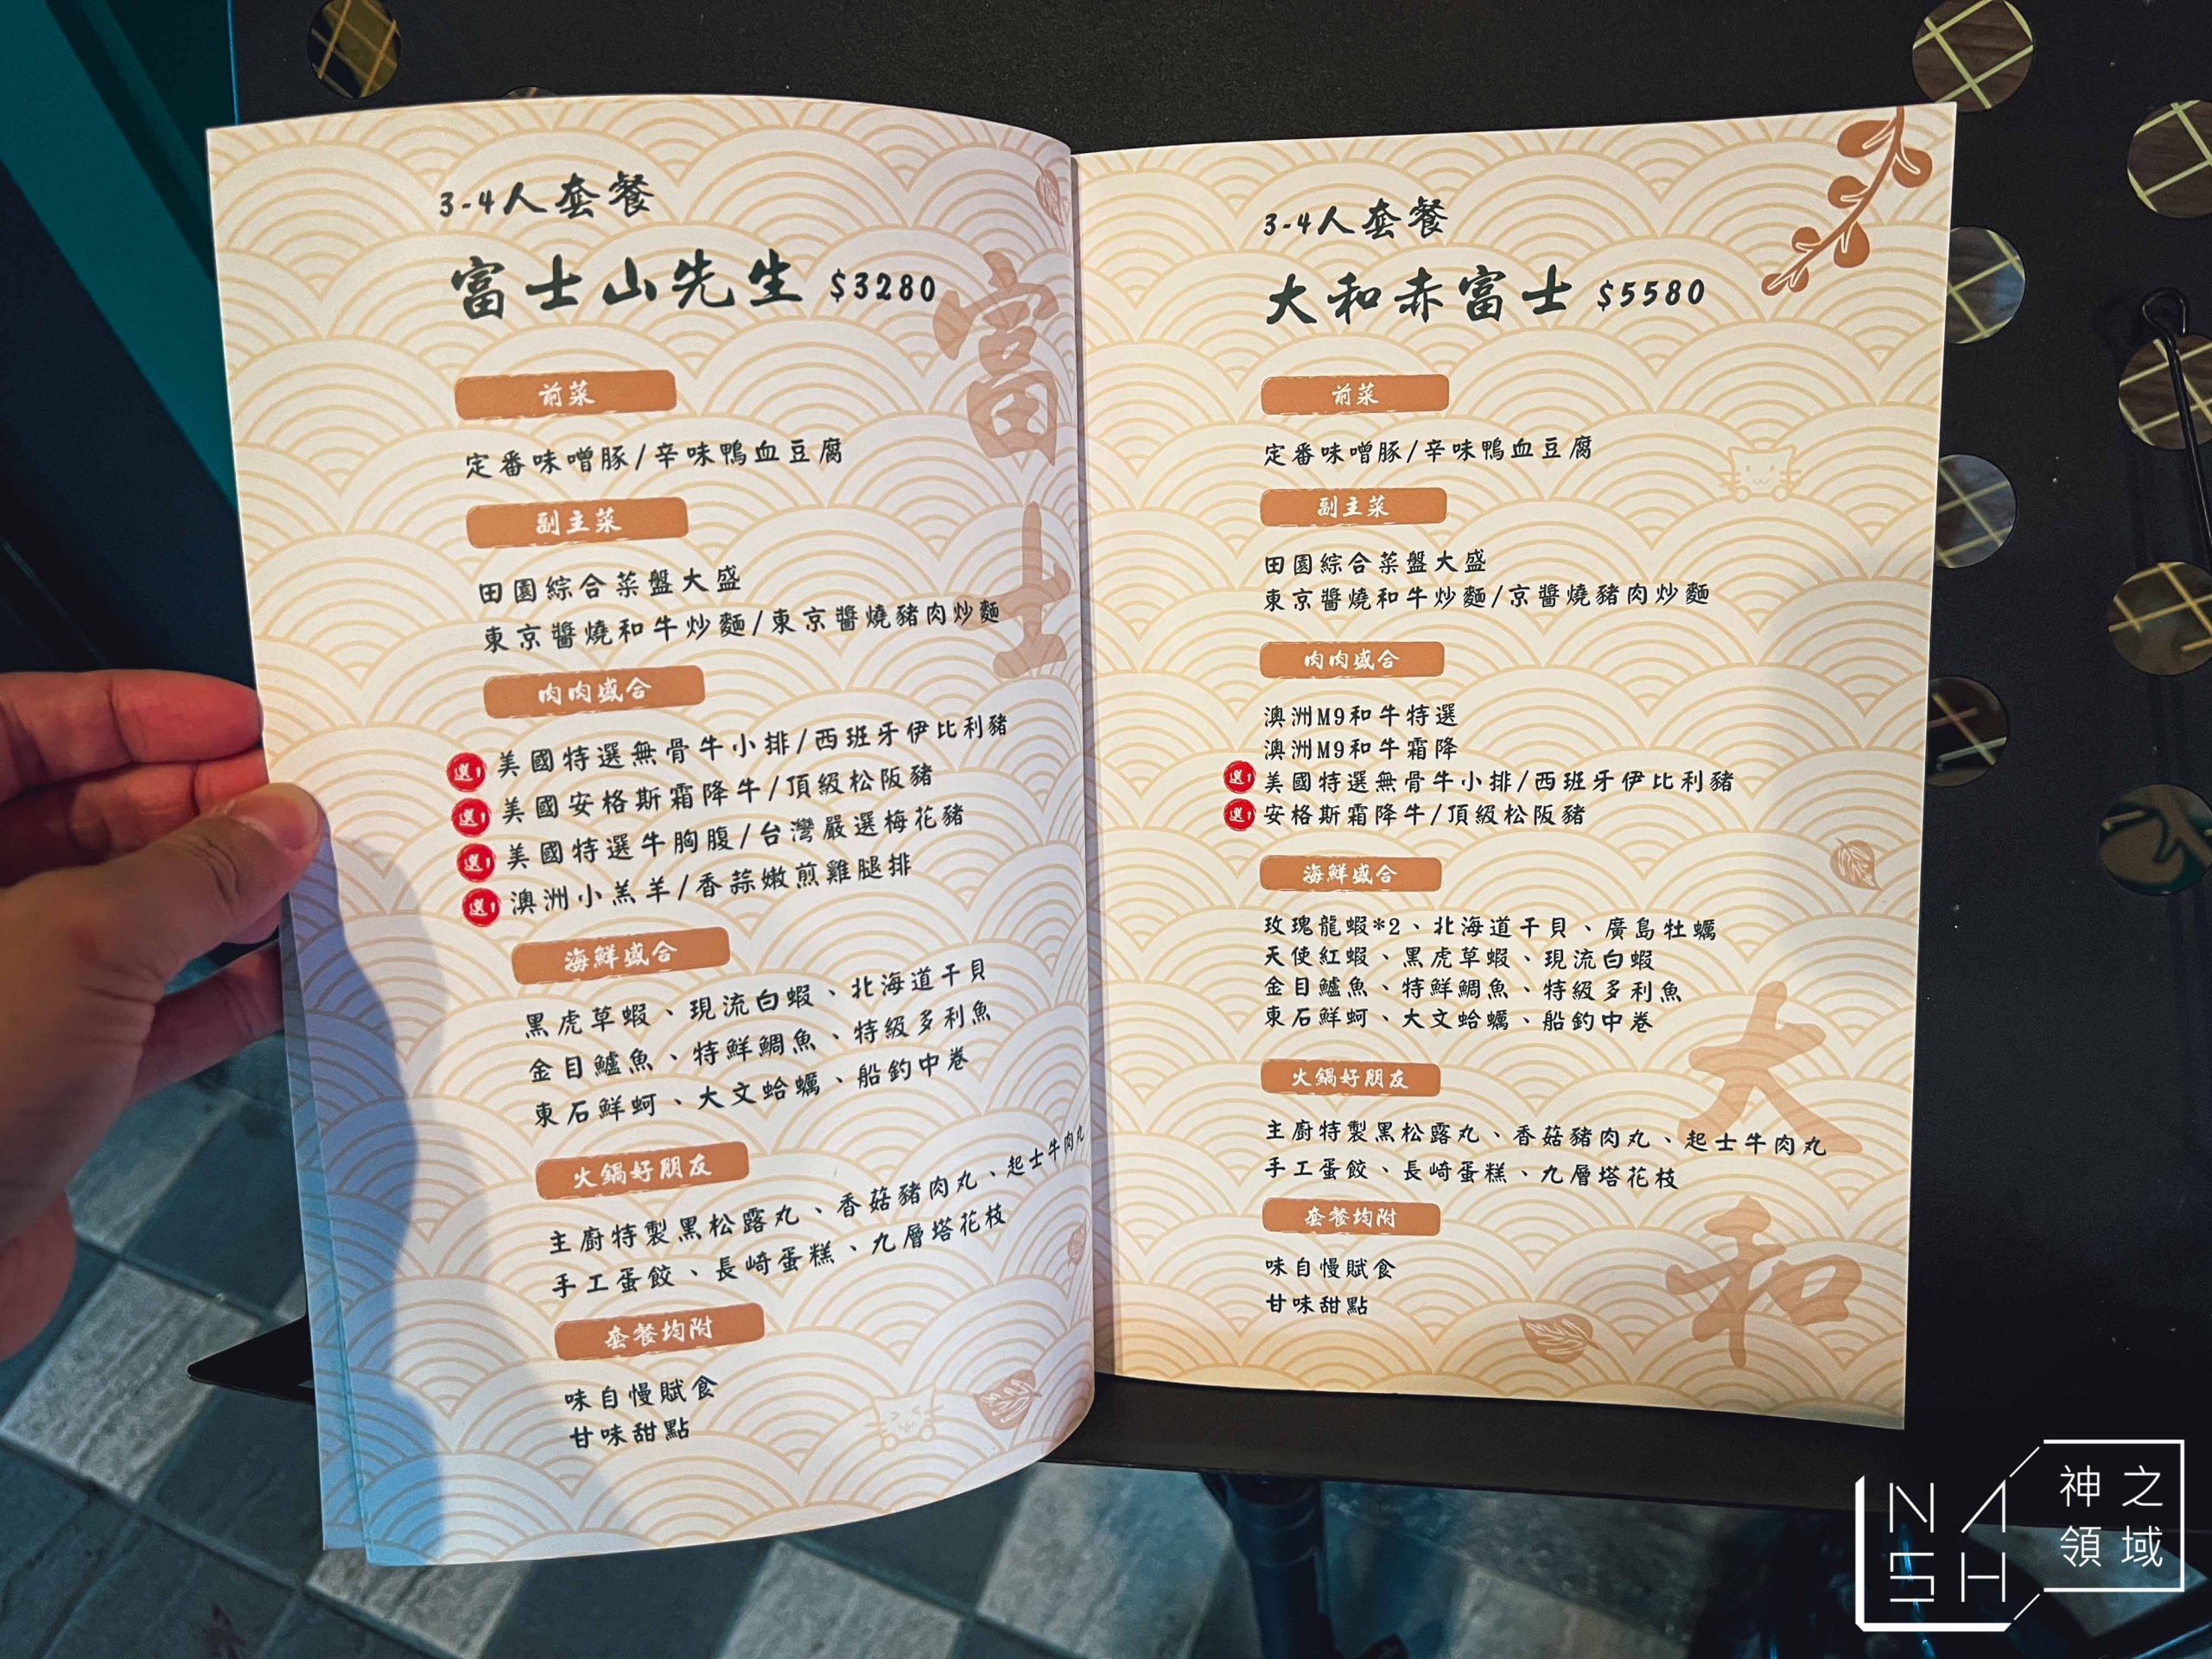 3-4人套餐
富士山先生 $3280
富士
前菜
定番味噌豚/辛味鴨血豆腐
副主菜
田園綜合菜盤大盛
東京醬燒和牛炒麵/東京醬燒豬肉炒麵
肉肉盛合
選1 美國特選無骨牛小排/西班牙伊比利豬
選1 美國安格斯霜降牛/頂級松阪豬
選1 美國特選牛胸腹/台灣嚴選梅花豬
選1 澳洲小羔羊/香蒜嫩煎雞腿排
海鮮盛合
黑虎草蝦、現流白蝦、北海道干貝
金目鱸魚、特鮮鯛魚、特級多利魚
東石鮮蚵、大文蛤蠣、船釣中卷
火鍋好朋友
主廚特製黑松露丸、香菇豬肉丸、起士牛肉丸
手工蛋餃、長崎蛋糕、九層塔花枝
套餐均附
味自慢賦食
甘味甜點
3-4人套餐
大和赤富士 $5580
前菜
定番味噌豚/辛味鴨血豆腐
副主菜
田園綜合菜盤大盛
東京醬燒和牛炒麵/京醬燒豬肉炒麵
肉肉盛合
澳洲M9和牛特選
澳洲M9和牛霜降
選1 美國特選無骨牛小排/西班牙伊比利豬
選1 安格斯霜降牛/頂級松阪豬
海鮮盛合
玫瑰龍蝦*2、北海道干貝、廣島牡蠣
天使紅蝦、黑虎草蝦、現流白蝦
金目鱸魚、特鮮鯛魚、特級多利魚
東石鮮蚵、大文蛤蠣、船釣中卷
火鍋好朋友
主廚特製黑松露丸、香菇豬肉丸、起士牛肉丸
手工蛋餃、長崎蛋糕、九層塔花枝
套餐均附
味自慢賦食
甘味甜點
大和
NASH
神之領域